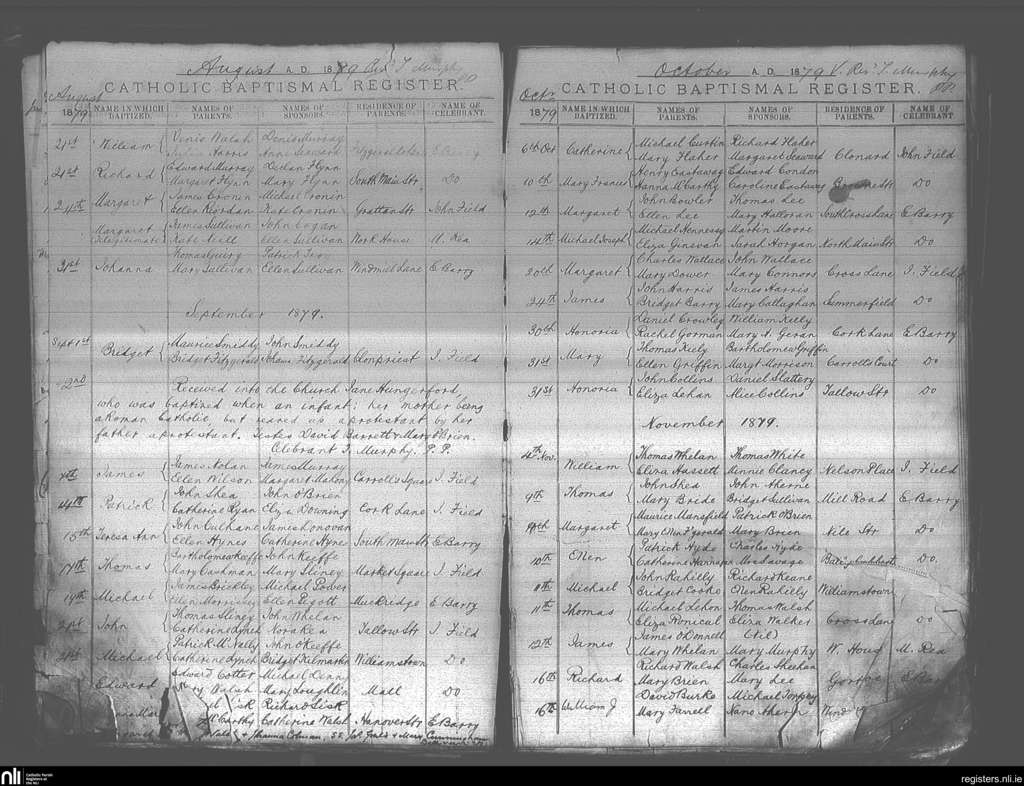 August A.D. 1879 Rev. T. Murphy PP
CATHOLIC BAPTISMAL REGISTER.
August
1879 NAME IN WHICH BAPTIZED. NAMES OF PARENTS. NAMES OF SPONSORS. RESIDENCE OF PARENTS. NAME OF CELEBRANT.
21st William Denis Walsh Denis Murray
Harris Anne Seward E. Barry
21st Richard Edward Murray Declan Flynn
Margaret Flynn Mary Flynn South Main Str Do
24th Margaret James Cronin Michael Cronin
Ellen Riordan Kate Cronin Grattan Str John Field
Margaret James Sullivan John Cogan
Illegitimate Kate Neill Ellen Sullivan Work House M. Rea
Thomas Quirg Patrick
31st Johanna Mary Sullivan Ellen Sullivan Windmill Lane E. Barry
September 1879.
Sept 1st Bridget Maurice Smiddy John Smiddy
Bridget Fitzgerald Johana Fitzgerald Clonpriest J. Field
2nd Received into the Church Jane Hungerford,
who was baptized when an infant; her mother being
a Roman Catholic, but reared up a protestant by her
father a protestant. Testes David Barrett & Mary O'Brien.
Celebrant T. Murphy. P.P.
7th James James Nolan James Murray
Ellen Wilson Margaret Mahony Carroll's Square J. Field
14th Patrick John Shea John O'Brien
Catherine Ryan Eliza Downing Cork Lane J. Field
15th Teresa Ann John Culhane James Donovan
Ellen Hynes Catherine Hyne South Main Str E Barry
17th Thomas Bartholomew Keeffe John Keeffe
Mary Cashman Mary Sliney Market Square J. Field
19th Michael James Brickley Michael Power
Ellen Morrissey Ellen Pigott Muckridge E Barry
21st John Thomas Sliney John Whelan
Catherine Lynch Nora Rea Tallow Str J. Field
21st Michael Patrick McNally John O'Keeffe
Catherine Lynch Bridget Kilmartin Williamstown Do
Edward Edward Cotter Michael Denny
Mary Walsh Mary Loughlin Mall Do
Lisk Richard Lisk
McCarthy Catherine Walsh Hanover Str E Barry
& Johanna Colman
October A.D. 1879 V. Rev. T. Murphy PP.
CATHOLIC BAPTISMAL REGISTER.
Oct.
1879 NAME IN WHICH BAPTIZED. NAMES OF PARENTS. NAMES OF SPONSORS. RESIDENCE OF PARENTS. NAME OF CELEBRANT
6th Oct Catherine Michael Curtin Richard Flaher
Mary Flaher Margaret Seaward Clonard John Field
10th Mary Frances Henry Eastaway Edward Condon
Hanna McCarthy Caroline Eastaway Do
12th Margaret John Fowler Thomas Lee
Ellen Lee Mary Halloran South Cross Lane E Barry
14th Michael Joseph Michael Hennessy Martin Moore
Eliza Ginevan Sarah Horgan North Main Str Do
20th Margaret Charles Wallace John Wallace
Mary Dower Mary Connors Cross Lane J. Field
24th James John Harris James Harris
Bridget Barry Mary Callaghan Summerfield Do
30th Honoria Daniel Crowley William Kelly
Rachel Gorman Mary A. Geran Cork Lane E Barry
31st Mary Thomas Kiely Bartholomew Griffin
Ellen Griffin Margt Morrison Carrolls Court Do
31st Honoria John Collins Daniel Slattery
Eliza Lehan Alice Collins Tallow Str Do
November 1879.
4th Nov. William Thomas Whelan Thomas White
Eliza Hassett Minnie Clancy Nelson Place J. Field
9th Thomas John Shea John Aherne
Mary Bride Bridget Sullivan Mill Road E Barry
9th Margaret Maurice Mansfield Patrick O'Brien
Mary Ellen Fitzgerald Mary Brien Nile Str Do
10th Ellen Patrick Hyde Charles Hyde
Catherine Harrison Mrs Savage Do.
11th Michael John Rahilly Richard Keane
Bridget Cooke Ellen Rahilly Williamstown
11th Thomas Michael Lehon Thomas Walsh
Eliza Monical Eliza Walker Cross Lane Do
12th James James O'Donnell (Nil)
Mary Whelan Mary Murphy W. House M. Rea
16th Richard Richard Walsh Charles Sheehan
Mary Brien Mary Lee
16th William J David Burke Michael Torpey
Mary Farrell Nano Ahern Wind
nli Catholic Parish Registers at the NLI
registers.nli.ie